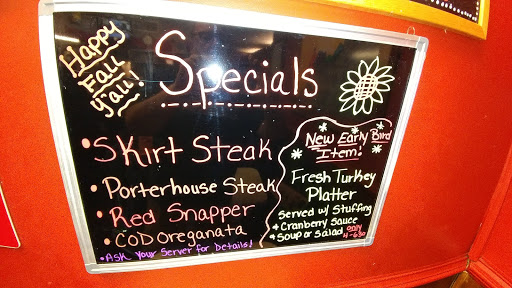 Happy
Fall
Y'all!
Specials
• Skirt Steak
• Porterhouse Steak
• Red Snapper
• COD Oreganata
• Ask Your Server for Details!
New Early Bird
Item!
Fresh Turkey
Platter
Served w/ Stuffing
& Cranberry Sauce
& Soup or Salad only
4-6:30